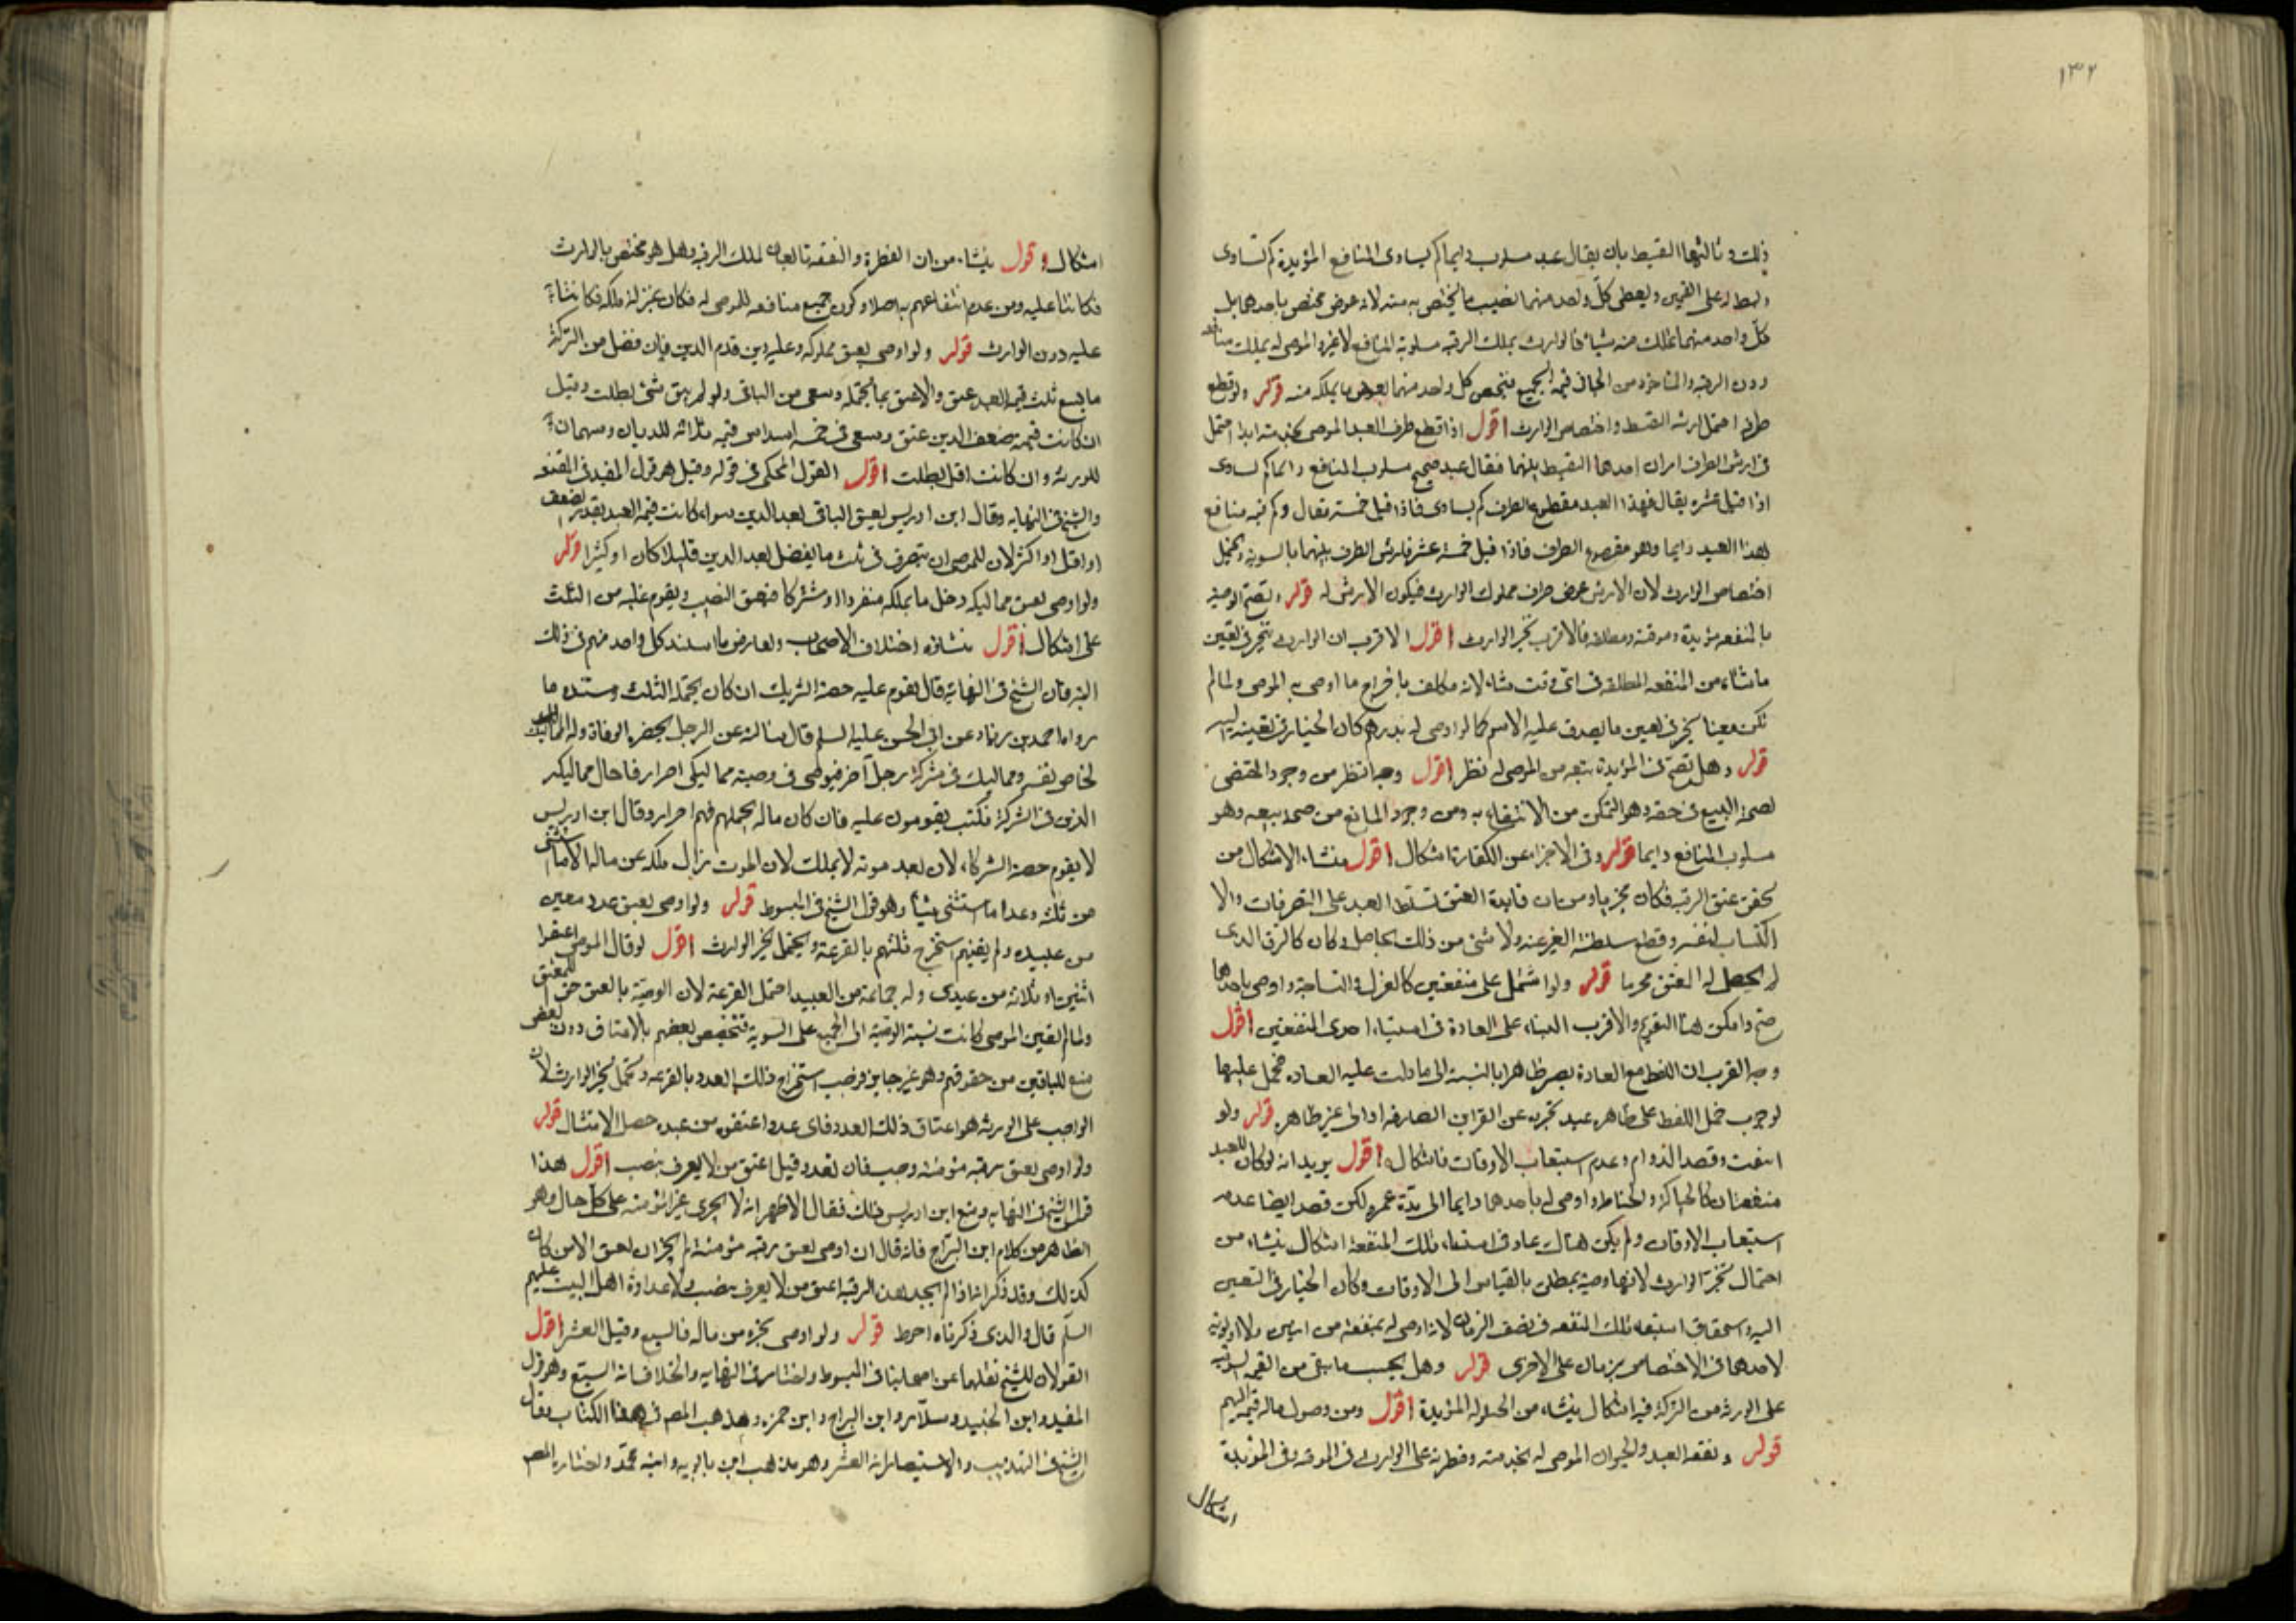 ١٣٢
ذلك وثالثها التقسيط بان يقال عبد مسلوب دايما كم يساوى المنافع المؤبدة كم تساوى
وبسط على القيمتين ويعطى كل واحد منهما نصيب ما يختص به منه لانه عوض مختص باحدهما بل
كل واحد منهما يملك منه شيئا فالوارث يملك الرقبة مسلوبة المنافع لا غير والموصى له يملك منافعه
دون الرقبة والماخوذ من الجانى قيمة الجميع فيخص كل واحد منهما بعوض ما يملكه منه قوله ولو قطع
طرفه احتمل ارشه التقسيط واختصاص الوارث اقول اذا قطع طرف العبد الموصى بخدمته ابدا احتمل
فى ارش الطرف امران احدهما التقسيط بينهما فيقال عبد صحيح مسلوب المنافع دائما كم يساوى
اذا قيل عشرة يقال فهذا العبد مقطوع الطرف كم يساوى فاذا قيل خمسة فيقال وكم قيمة منافع
هذا العبد دايما وهو مقطوع الطرف فاذا قيل خمسة عشر فارش الطرف بينهما بالسوية ويحتمل
اختصاص الوارث لان الارش عوض طرف مملوك الوارث فيكون الارش له قوله وتصح الوصية
بالمنفعة مؤبدة وموقتة ومطلقة فالاقرب تخير الوارث اقول الاقرب ان الوارث يتخير فى تعيين
ما شاء من المنفعة المطلقة فى اى وقت شاء لانه مكلف باخراج ما اوصى به الموصى ولما لم
تكن معينا تخير فى تعيين ما يصدق عليه الاسم كما لو اوصى له بدرهم كان الخيار فى تعيينه اليه
قوله وهل تصح فى المؤبدة بيعه من الموصى له نظر اقول وجه النظر من وجود المقتضى
لصحة البيع فى حقه وهو التمكن من الانتفاع به ومن وجود المانع من صحة بيعه وهو
مسلوب المنافع دايما قوله وفى الاجزاء عن الكفارة اشكال اقول منشاء الاشكال من
تحقق عتق الرقبة فكان مجزيا ومن ان فايدة العتق تسلط العبد على التصرفات والا
اكتساب لنفسه وقطع سلطنة الغير عنه ولا شئ من ذلك بحاصل وكان كالزمن الذى
لم يحصل له العتق محررا قوله ولو اشتمل على منفعتين كالغزل والنساجة واوصى باحداهما
صح وامكن هنا التقويم والاقرب البناء على العادة فى استيفاء احدى المنفعتين اقول
وجه القرب ان اللفظ مع العادة يصير ظاهرا بالنسبة الى ما دلت عليه العادة فيحمل عليها
لوجوب حمل اللفظ على ظاهره عند تجرده عن القراين الصارفة او الى غير ظاهره قوله ولو
انتفت وقصد الدوام وعدم استيعاب الاوقات فاشكال اقول يريد انه لو كان للعبد
منفعتان كالحياكة والخياطة واوصى له باحدهما دايما الى مدة عمره لكن قصد ايضا عدم
استيعاب الاوقات ولم يكن هناك عادة فى استيفاء تلك المنفعة اشكال ينشاء من
احتمال تخير الوارث لانها وصية بمطلق بالقياس الى الاوقات وكان الخيار فى التعيين
اليه واستحقاق استيفاء تلك المنفعة فى نصف الزمان لانه اوصى له بمنفعة من اثنين ولا اولوية
لاحدهما فى الاختصاص بزمان على الاخرى قوله وهل يحتسب ما بقى من القيمة
على الورثة من التركة فيه اشكال ينشاء من الحيلولة المؤبدة اقول ومن وصول ماله قيمة اليهم
قوله ونفقة العبد والحيوان الموصى له بخدمته وفطرته على الوارث فى الموقتة وفى المؤبدة
اشكال
اشكال وقول ينشاء من ان الفطرة والنفقة تابعان لملك الرقبة وهل هو مختص بالوارث
فكانتا عليه ومن عدم انتفاعهم به اصلا وكون جميع منافعه للموصى له فكان بمنزلة ملكه فكانتا
عليه دون الوارث قوله ولو اوصى بعتق مملوكه وعليه دين قدم الدين فان فضل من التركة
ما يسع ثلث قيمة العبد عتق والا عتق بما يحتمله وسعى من الباقى ولو لم يبق شئ بطلت وقيل
ان كانت قيمته ضعف الدين عتق وسعى فى خمسة اسداس قيمته ثلاثة للديان وسهمان
للورثة وان كانت اقل بطلت اقول القول المحكى فى قوله وقيل هو قول المفيد فى المقنعة
والشيخ فى النهاية وقال ابن ادريس يعتق الباقى بعد الدين سواء كانت قيمة العبد بقدر ضعف
او اقل او اكثر لان للموصى ان يتصرف فى ثلث ما يفضل بعد الدين قليلا كان او كثيرا قوله
ولو اوصى بعتق مماليكه دخل ما يملكه منفردا او مشتركا فيعتق النصيب ويقوم عليه من الثلث
على اشكال اقول منشاؤه اختلاف الاصحاب وتعارض ما استند كل واحد منهم فى ذلك
اليه فان الشيخ فى النهاية قال يقوم عليه حصة الشريك ان كان يحتمله الثلث ومستنده ما
رواه احمد بن زياد عن ابى الحسن عليه السلم قال سالته عن الرجل يحضره الوفاة وله المماليك
لخاصة نفسه ومماليك فى شركة رجل آخر فيوصى فى وصيته مماليكى احرار فا حال مماليكه
الذين فى الشركة فكتب يقومون عليه فان كان ماله يحتملهم فهم احرار وقال ابن ادريس
لا يقوم حصة الشركاء لان بعد موته لا يملك لان الموت يزال ملكه عن ماله الا ما استثنى
من ثلثه وعدا ما استثنى شيئا وهو قول الشيخ فى المبسوط قوله ولو اوصى بعتق عدد معين
من عبيده ولم يعينهم استخرج ثلثهم بالقرعة ويحتمل تخير الوارث اقول لو قال الموصى اعتقوا
اثنين او ثلاثة من عبيدى وله جماعة من العبيد احتمل القرعة لان الوصية بالعتق حق للمعتق
ولما لم يعين الموصى كانت نسبة الوصية الى الجميع على السوية فتخصيص بعضهم بالاعتاق دون بعض
منع للباقين من حقوقهم وهو غير جايز فوجب استخراج ذلك العدد بالقرعة ويحتمل تخير الوارث لان
الواجب على الورثة هو اعتاق ذلك العدد فاى عدد اعتقوه من عبيده حصل الامتثال قوله
ولو اوصى بعتق رقبة مؤمنة وجب فان تعذر قيل اعتق من لا يعرف بنصب اقول هذا
قول الشيخ فى النهاية ومنع ابن ادريس ذلك فقال الاظهر انه لا يجزى غير المؤمنة على كل حال وهو
الظاهر من كلام ابن البراج فانه قال ان اوصى بعتق رقبة مؤمنة لم يجز ان يعتق الا من كان
كذلك وقد ذكر انه اذا لم يجد هذه الرقبة اعتق من لا يعرف بنصب ولا عداوة اهل البيت عليهم
السلم قال والذى ذكرناه احوط قوله ولو اوصى بجزء من ماله فالسبع وقيل العشر اقول
القولان للشيخ نقلهما عن اصحابنا فى المبسوط واختار فى النهاية والخلاف انه السبع وهو قول
المفيد وابن الجنيد وسلار وابن البراج وابن حمزة وهو مذهب المصـ فى هذا الكتاب وقال
الشيخ فى التهذيب والاستبصار انه العشر وهو مذهب ابن بابويه وابنه محمد واختاره المصـ